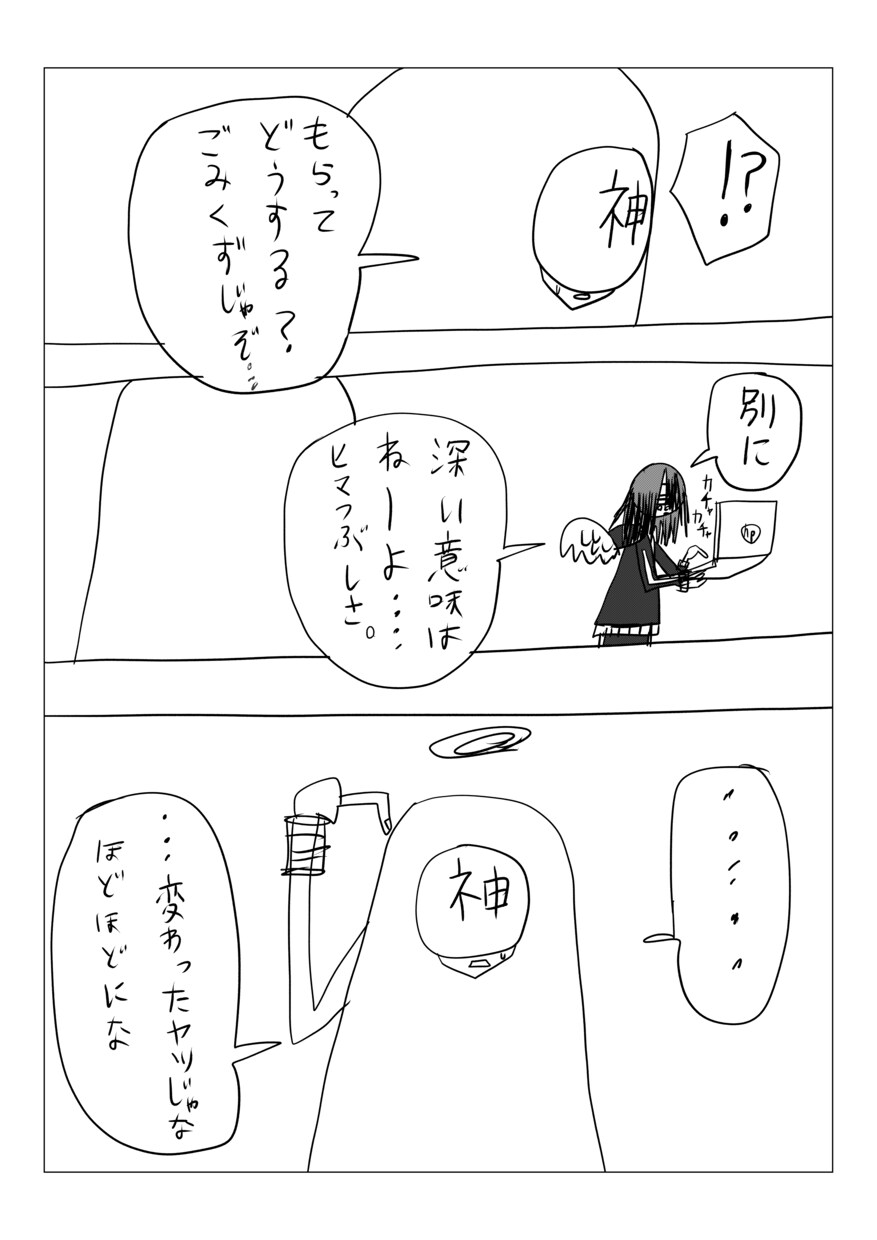 !?
神
もらって
どうする？
ごみくずじゃぞ。
別に
カチャ
カチャ
hp
深い意味は
ねーよ・・・・
ヒマつぶしさ。
・・・・・
神
・・・変わったヤツじゃな
ほどほどにな